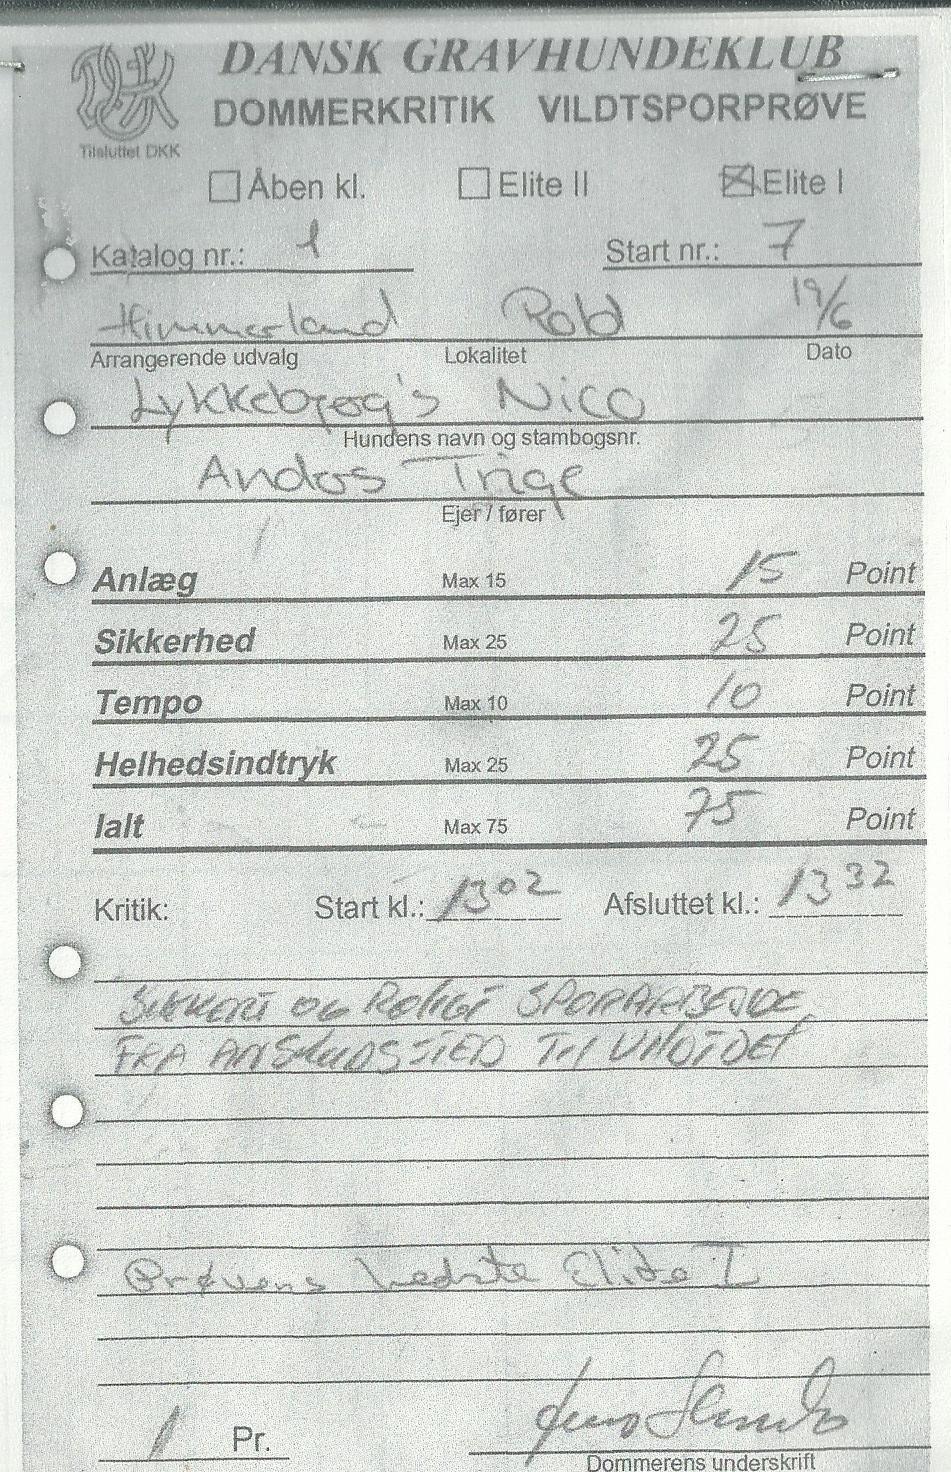 DANSK GRAVHUNDEKLUB
DOMMERKRITIK VILDTSPORPRØVE
Tilsluttet DKK
Åben kl. Elite II Elite I
Katalog nr.: 1 Start nr.: 7
Himmerland Rold 19/6
Arrangerende udvalg Lokalitet Dato
Lykkebjerg's Nico
Hundens navn og stambogsnr.
Anders Trige
Ejer / fører
Anlæg Max 15 15 Point
Sikkerhed Max 25 25 Point
Tempo Max 10 10 Point
Helhedsindtryk Max 25 25 Point
Ialt Max 75 75 Point
Kritik: Start kl.: 13 02 Afsluttet kl.: 13 32
SIKKERT OG ROLIGT SPORARBEJDE
FRA ANSKUDSSTED TIL VILDTDET
Prøvens bedste Elite I
1 Pr.
Dommerens underskrift